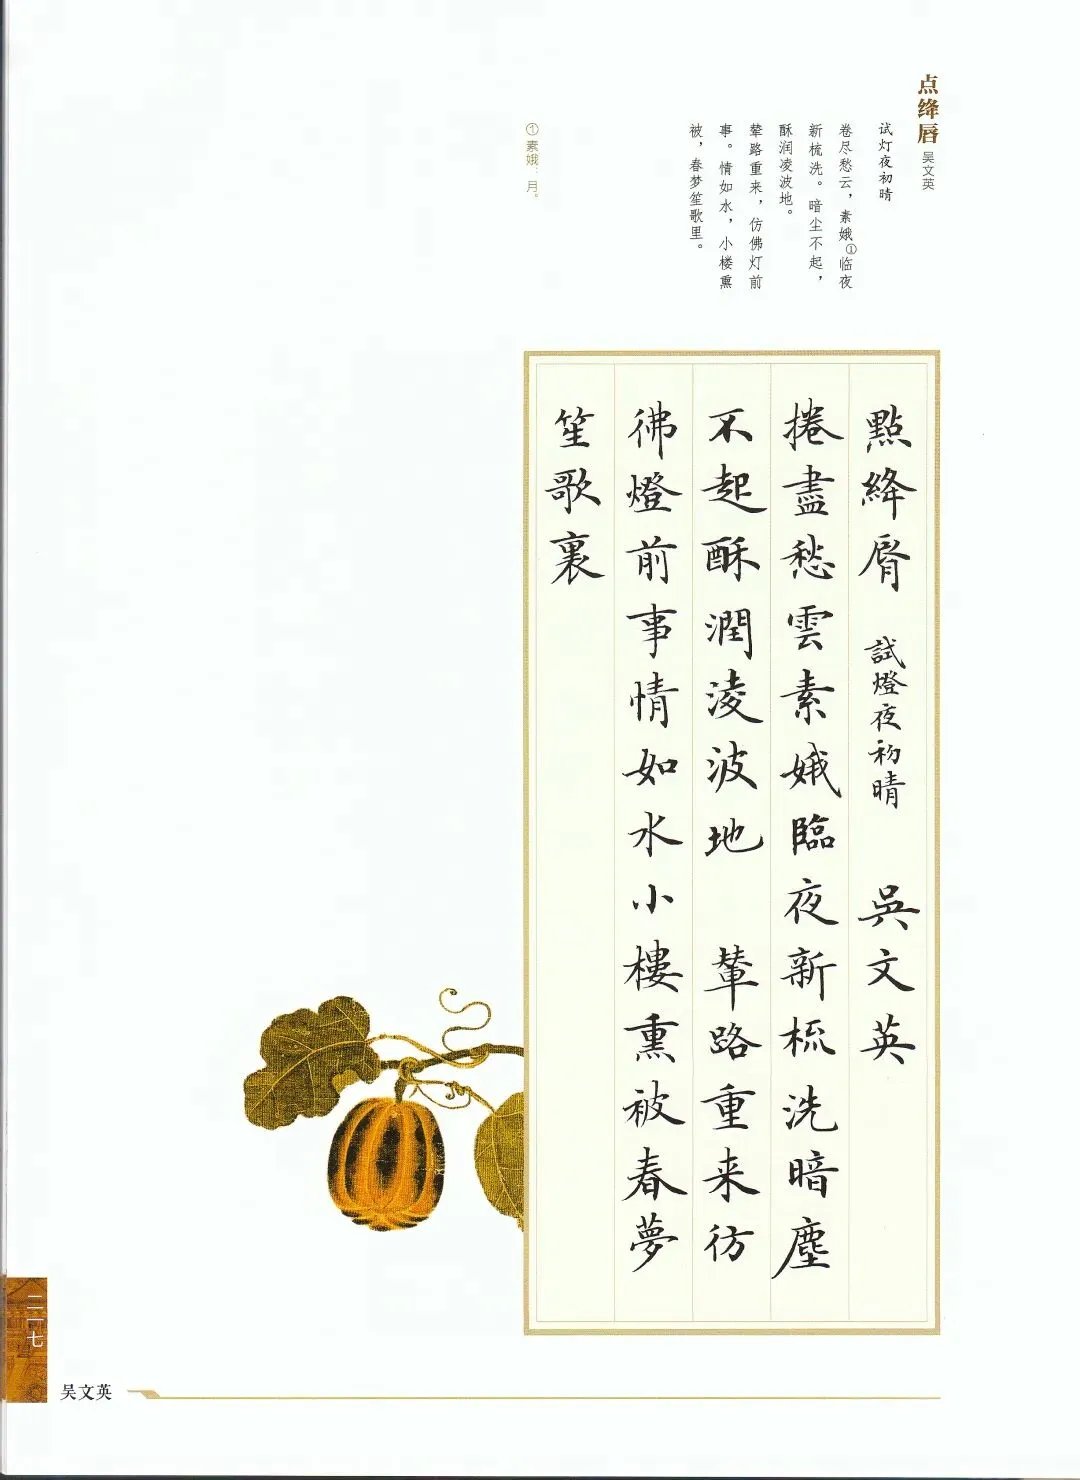 点绛唇 吴文英
试灯夜初晴
卷尽愁云，素娥①临夜
新梳洗。暗尘不起，
酥润凌波地。
辇路重来，仿佛灯前
事。情如水，小楼熏
被，春梦笙歌里。
①素娥：月。
點絳脣 試燈夜初晴 吳文英
捲盡愁雲素娥臨夜新梳洗暗塵
不起酥潤淩波地 輦路重来彷
彿燈前事情如水小樓熏被春夢
笙歌裏
二一七
吴文英